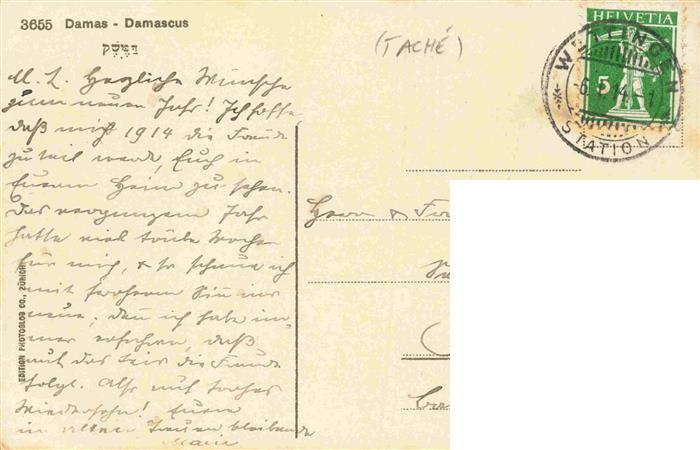 3655 Damas - Damascus
דַּמֶּשֶׂק
(TACHÉ)
HELVETIA
5
WETTINGEN
STATION
M. L. Herzliche Wünsche
zum neuen Jahr! Ich hoffe,
daß mir 1914 die Freude
zu teil werde, Euch in
Eurem Heim zu sehen.
Das vergangene Jahr
hatte viel trübe Wochen
für mich, & so schaue ich
mit frohem Sinn ins
neue; denn ich habe im-
mer erfahren, daß
auf das Leid die Freude
folgt. Also auf frohes
Wiedersehn! Eure
in alter Treue bleibende
Marie
Herrn & Fr
EDITION PHOTOGLOB CO., ZÜRICH